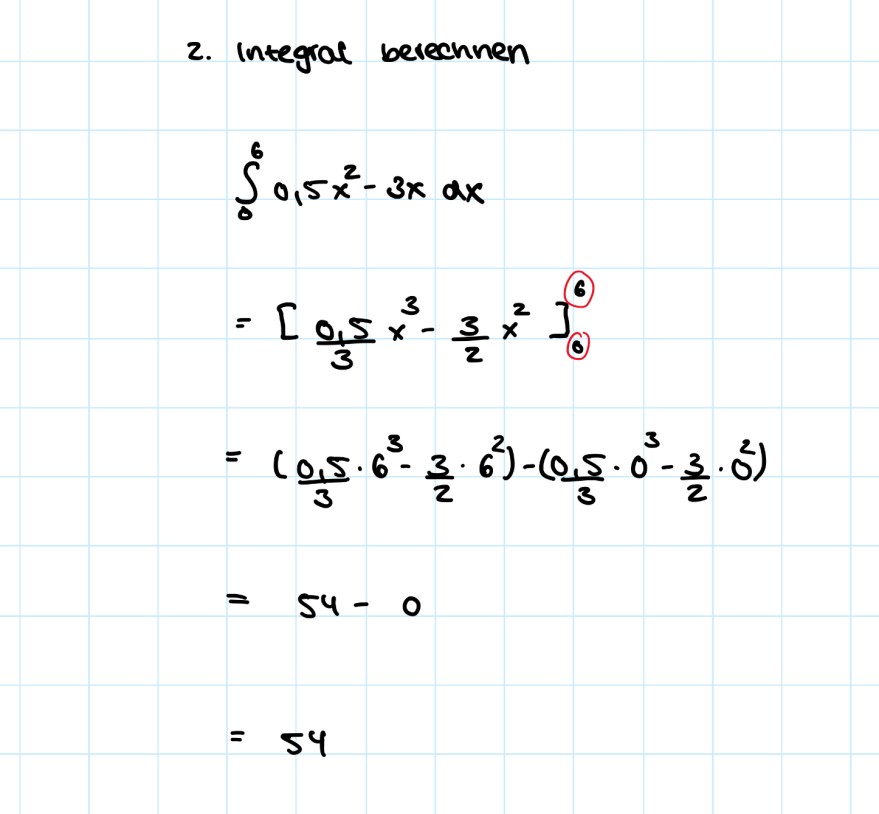 2. Integral berechnen
∫₀⁶ 0,5x² - 3x dx
= [ 0,5/3 x³ - 3/2 x² ]₀⁶
= (0,5/3 · 6³ - 3/2 · 6²) - (0,5/3 · 0³ - 3/2 · 0²)
= 54 - 0
= 54